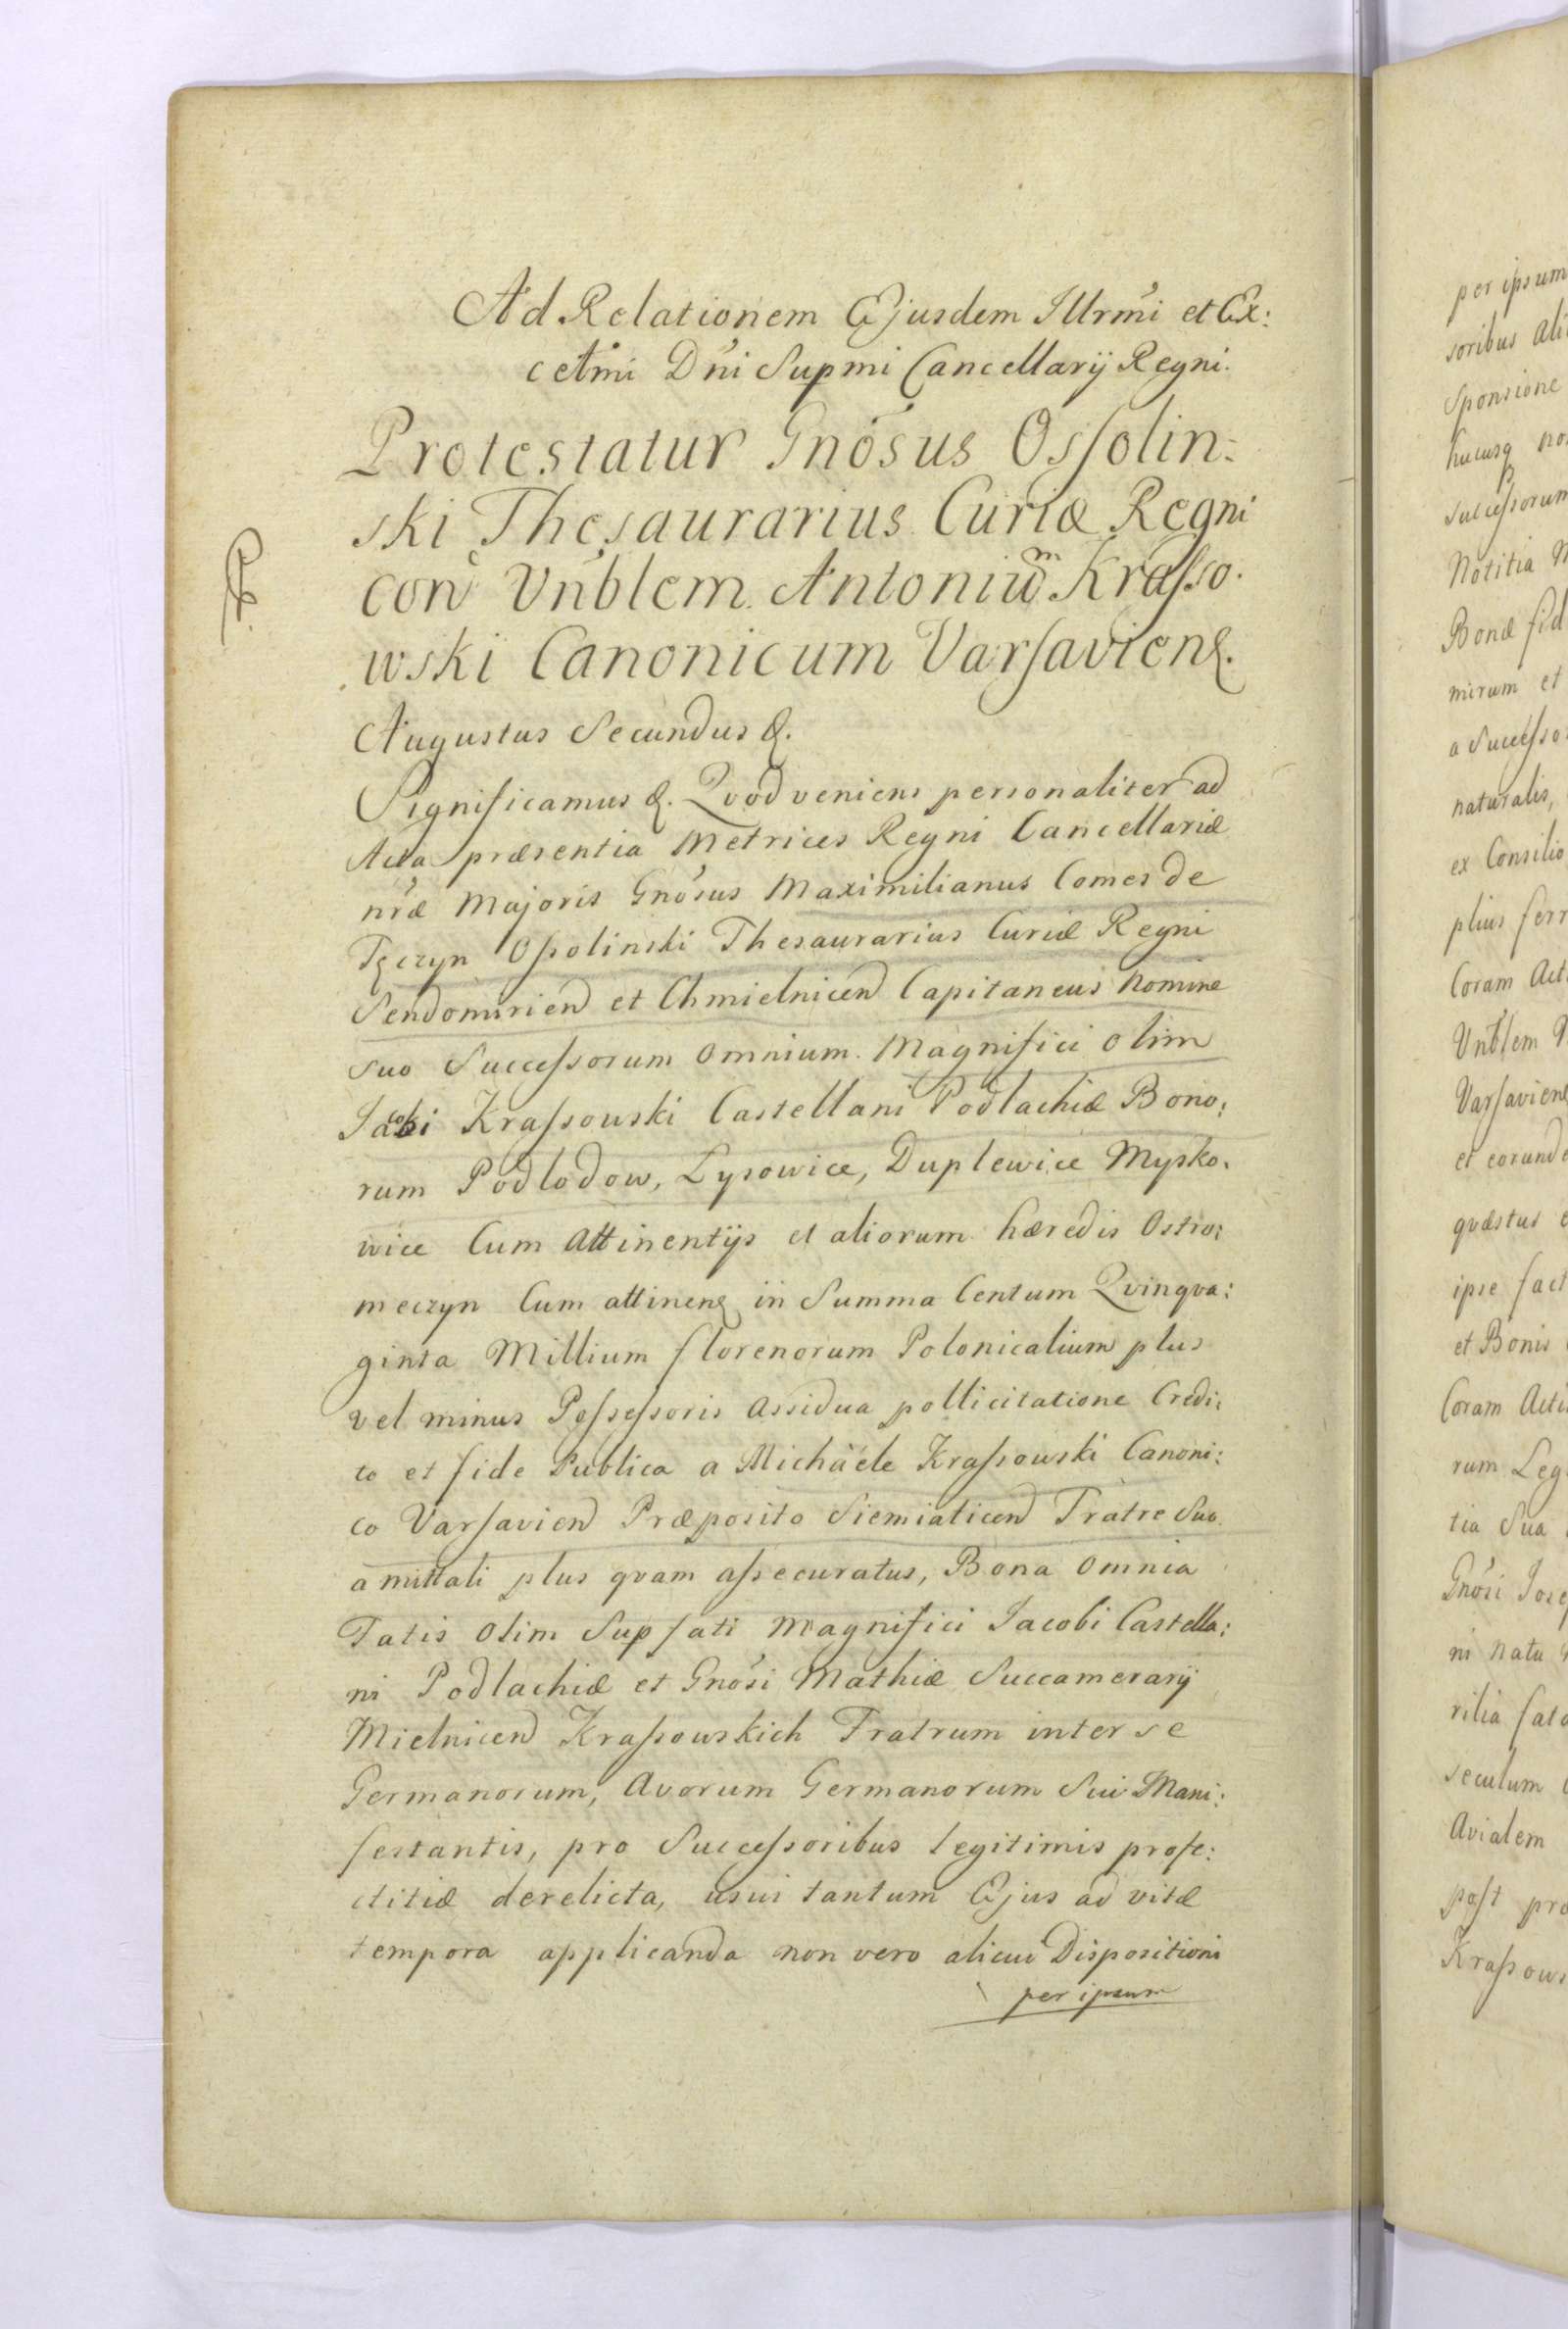 Ad Relationem Ejusdem Illrmi et Ex:
cellmi Dni Supmi Cancellarij Regni.
Protestatur Gnosus Ossolin:
ski Thesaurarius Curiæ Regni
con Vnblem Antonium Krasso.
wski Canonicum Varsavien̄.
Augustus Secundus &.
Significamus &. Qvod veniens personaliter ad
Acta præsentia Metrices Regni Cancellariæ
nr̄æ Majoris Gnosus Maximilianus Comes de
Tęczyn Ossolinski Thesaurarius Curiæ Regni
Sendomirien et Chmielnicen Capitaneus Nomine
suo Successorum omnium. Magnifici olim
Jacobi Krassowski Castellani Podlachiæ Bono:
rum Podlodow, Lysowice, Duplewice Mysko.
wice Cum Attinentijs et aliorum hæredis Ostro:
meczyn Cum attinen̄ in Summa Centum Qvinqva:
ginta Millium florenorum Polonicalium plus
vel minus Possessoris Assidua pollicitatione Credi:
to et fide Publica a Michaële Krassowski Canoni:
co Varsavien Præposito Siemiaticen Fratre Suo
amittali plus qvam assecuratus, Bona Omnia
Fatis Olim Supfati Magnifici Jacobi Castella:
ni Podlachiæ et Gnosi Mathiæ Succamerarij
Mielnicen Krassowskich Fratrum inter se
Germanorum, Avorum Germanorum Sui Mani:
festantis, pro Successoribus legitimis profe:
ctitiæ derelicta, usui tantum Ejus ad vitæ
tempora applicanda non vero alicui Dispositioni
per ipsum
per ipsum
soribus ali
Sponsione
hucusq no
successorum
Notitia
Bonæ fid
mirum et
a Successo
naturalis,
ex Consilio
plius ferr
Coram Act
Vnblem
Varsavien̄
et eorunde
qvæstus
ipse fact
et Bonis
Coram Acti
rum Leg
tia Sua
Gnosi Jose
ni natu
rilia fato
seculum
Avialem
post pro
Krassows